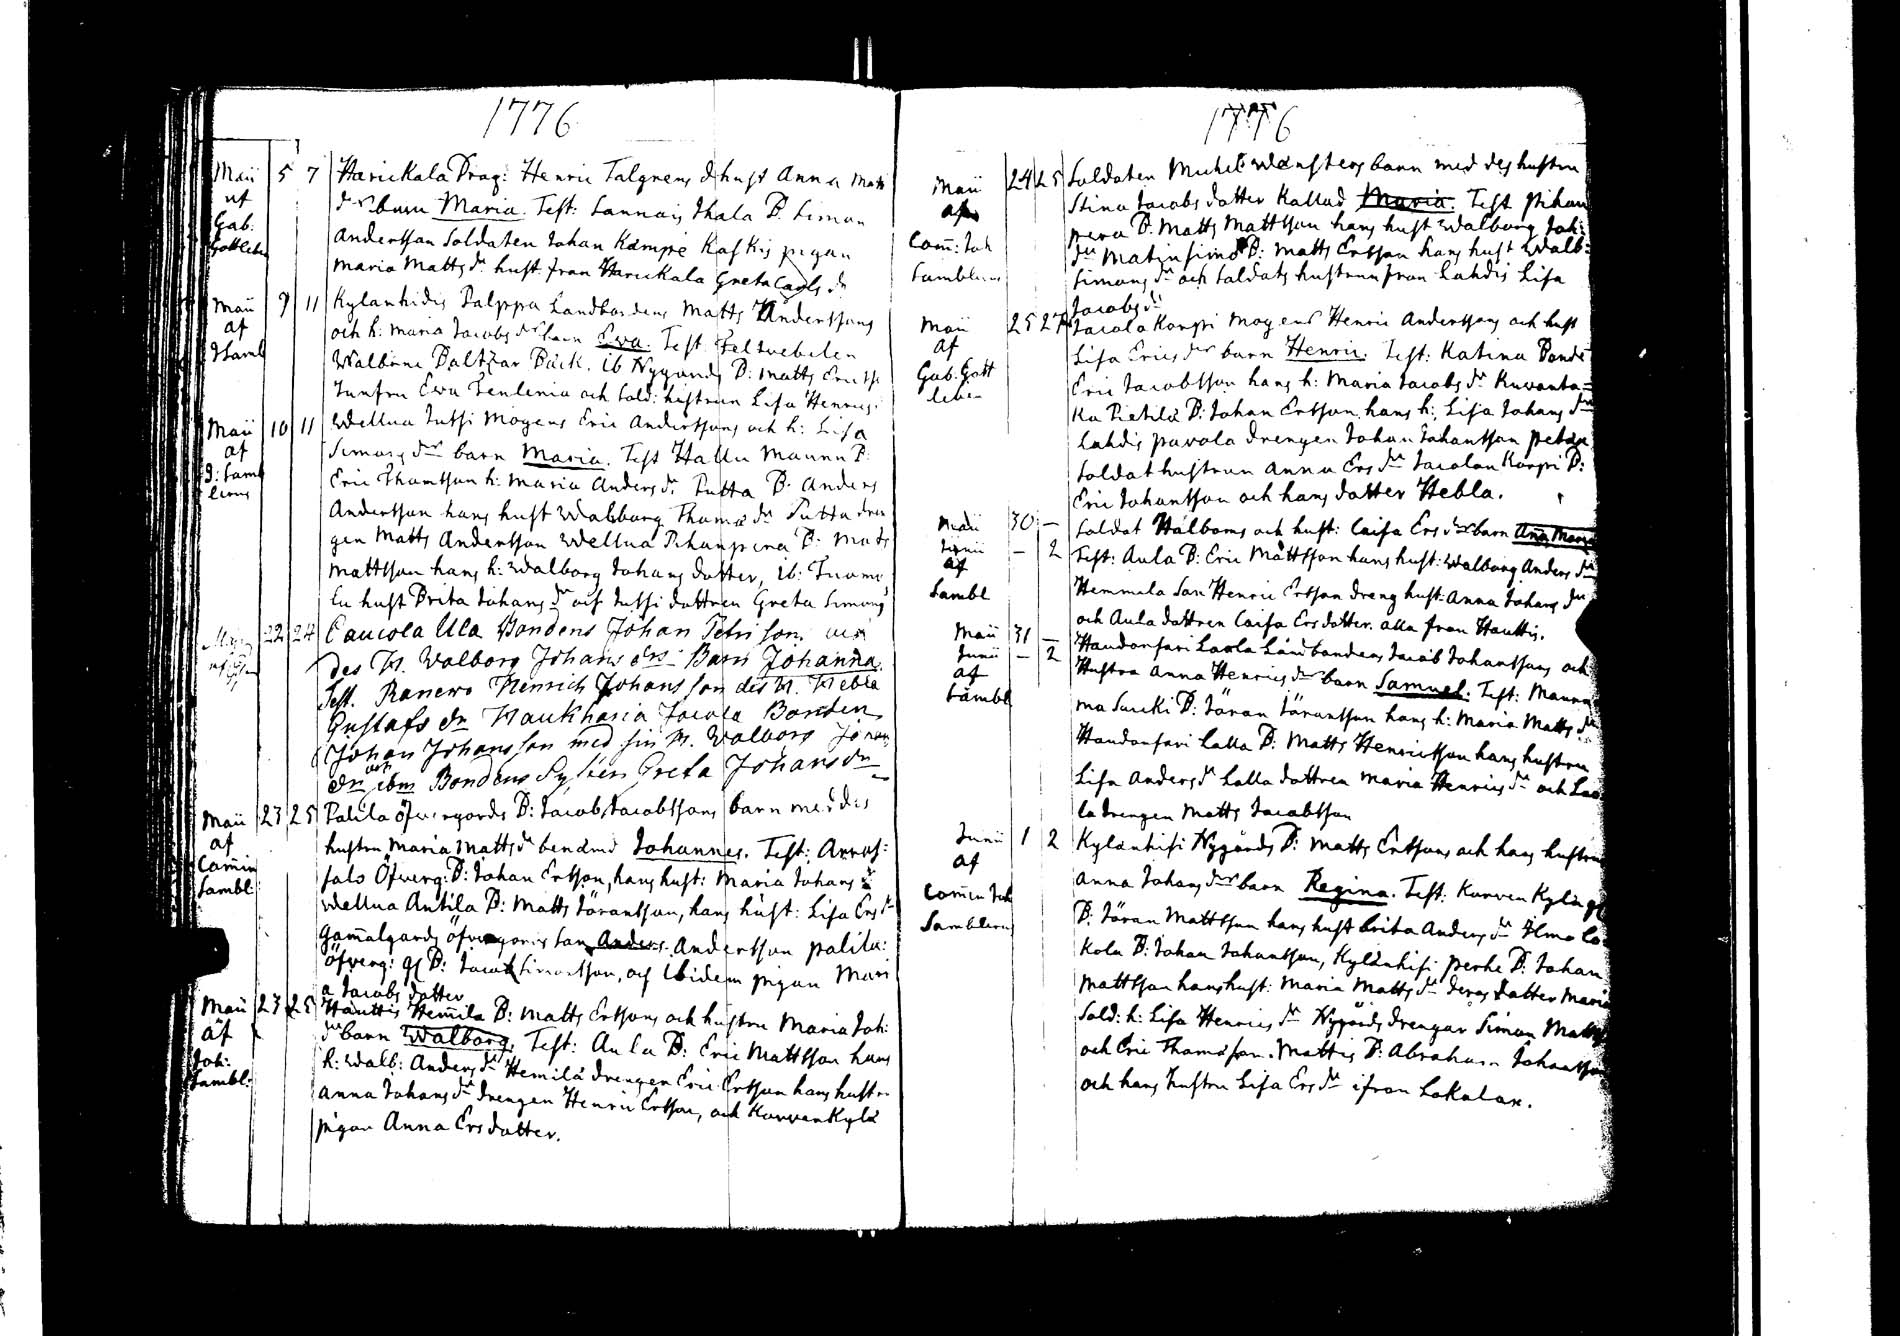 1776
Maii 5 7 Harickala Drag: Henric Talgrens d hust Anna Matts
af drs barn Maria. Test: Sannais Ihala B. Simon
Gab: Andersson Soldaten Johan Kämpe Kaskis pigan
Gottleben Maria Matts dr hust. från Harickala Greta Carls dr
Maii 9 11 Kylänhidis Palppa Landbondens Matts Anderssons
af och h: Maria Jacobs drs barn Ewa. Test: Feltwebelen
J Sambl Walborn Baltzar Bäck. ib Nygårds B: Matts Ericss
Junfru Ewa Zenlenia och Sold: hustrun Lisa Henrics:
Maii 10 11 Wellua Jussi Mogens Eric Anderssons och h: Lisa
af Simons drs barn Maria. Test Hallu Maunu B:
J: Samb Eric Thomsson h: Maria Anders dr. Putta B. Anders
lerus Andersson hans hust Walborg Thomæ dr Putta dren
gen Matts Andersson Wellua Pihanpera B: Matts
Mattsson hans h: Walborg Johans dotter, ib: Tuomo
la hust Brita Johans dr och Jussi dottren Greta Simons
22 24 Caucola Ula Bondens Johan Petrissons och
des H. Walborg Johans drs Barn Johanna.
Test. Ranewo Henrich Johansson des H. Hebla
Gustafs dr Haukharia Jacola Bonden
Johan Johansson med sin H. Walborg Jörans
dr och ibm Bondens Syster Greta Johans dr
Maii 23 25 Palila Öfvergårds B: Jacob Jacobssons barn med des
af hustru Maria Matts dr benämd Johannes. Test: Arvas:
Comin salo Öfverg: B: Johan Ersson, hans hust: Maria Johans dr
Sambl: Wellua Antila B: Matts Jöransson, hans hust: Lisa Ers dr
Gamalgårds öfvergårds Son Anders Andersson palila:
öfverg: gl B: Jacob Simonsson, och Ibidem pigan Mari
a Jacobs dotter
Maii 23 25 Hauttis Hemila B: Matts Erssons och hustru Maria Joh:
af drs barn Walborg. Test: Aula B: Eric Mattsson hans
Joh: h: Walb: Anders dr Hemilä drengen Eric Ersson hans hustru
Sambl: Anna Johans dr drengen Henric Ersson, och Kurvenkylä
pigan Anna Ersdotter.
1776
Maii 24 25 Soldaten Michel Wänsters barn med des hustru
af Stina Jacobs dotter Kallad Maria. Test Pihan
pera B: Matts Mattsson hans hust Walborg Joh:
Com: Joh dr Matinsimo B: Matts Ersson hans hust Walb:
Samblerus Simons dr och Soldats hustrun från Lahdis Lisa
Jacobs dr
Maii 25 27 Jacola Korpi Mogens Henric Anderssons och hust
af Lisa Erics drs barn Henric. Test: Katina Bonde
Gab. Gott Eric Jacobsson hans h: Maria Jacobs dr Kuvanta=
leben ka Pietilä B: Johan Ersson, hans h: Lisa Johans dr
Lahdis pavola drengen Johan Johansson
Soldat hustrun Anna Ers dr Jacolan Korpi B:
Eric Johansson och hans dotter Hebla.
Maii 30 — Soldat Hälboms och hust: Caisa Ers drs barn Anna Maria
Junii — 2 Test: Aula B: Eric Mattsson hans hust: Walborg Anders dr
af Hemmala Son Henric Ersson dreng hust: Anna Johans dr
Sambl och Aula dottren Caisa Ers dotter. alla från Hauttis.
Maii 31 — Haudonsari Laola Landbondens Jacob Johanssons och
Junii — 2 Hustru Anna Henrics drs barn Samuel. Test: Maunu
af ma Suicki B: Jöran Jöransson hans h: Maria Matts dr
Sambl Haudonsari Lalla B: Matts Henricsson hans hustru
Lisa Anders dr Lalla dottren Maria Henrics dr och Lao
la drengen Matts Jacobsson
Junii 1 2 Kylänhisi Nygårds B: Matts Erssons och hans hustru
af Anna Johans drs barn Regina. Test: Kurven Kylä gl
Comin Joh B: Jöran Mattsson hans hust Brita Anders dr Ilmo Lo
Samblerus kola B: Johan Johansson, Kylänhisi perhe B: Johan
Mattsson hans hust: Maria Matts dr deras dotter Maria
Sold: h: Lisa Henrics dr Nygårds drengar Simon Matts
och Eric Thomasson. Mattis B: Abraham Johansson
och hans hustru Lisa Ers dr ifrån Lokalax.